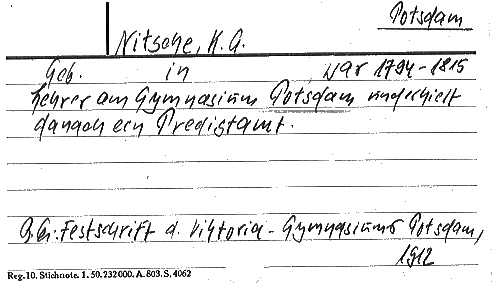 Potsdam
Nitsche, K. G.
Geb. in , war 1794-1815
Lehrer am Gymnasium Potsdam und erhielt
danach ein Predigtamt.
Festschrift d. Viktoria-Gymnasiums Potsdam,
1912
Reg. 10. Stichnote. 1. 50. 232000. A. 803. S. 4062